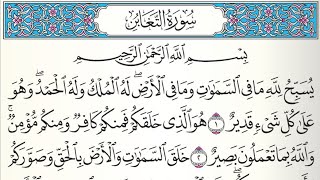 سُورَةُ التَّغَابُنِ
بِسْمِ اللَّهِ الرَّحْمَٰنِ الرَّحِيمِ
يُسَبِّحُ لِلَّهِ مَا فِي السَّمَٰوَٰتِ وَمَا فِي الْأَرْضِ ۖ لَهُ الْمُلْكُ وَلَهُ الْحَمْدُ ۖ وَهُوَ
عَلَىٰ كُلِّ شَيْءٍ قَدِيرٌ ١ هُوَ الَّذِي خَلَقَكُمْ فَمِنكُمْ كَافِرٌ وَمِنكُم مُّؤْمِنٌ ۚ
وَاللَّهُ بِمَا تَعْمَلُونَ بَصِيرٌ ٢ خَلَقَ السَّمَٰوَٰتِ وَالْأَرْضَ بِالْحَقِّ وَصَوَّرَكُمْ